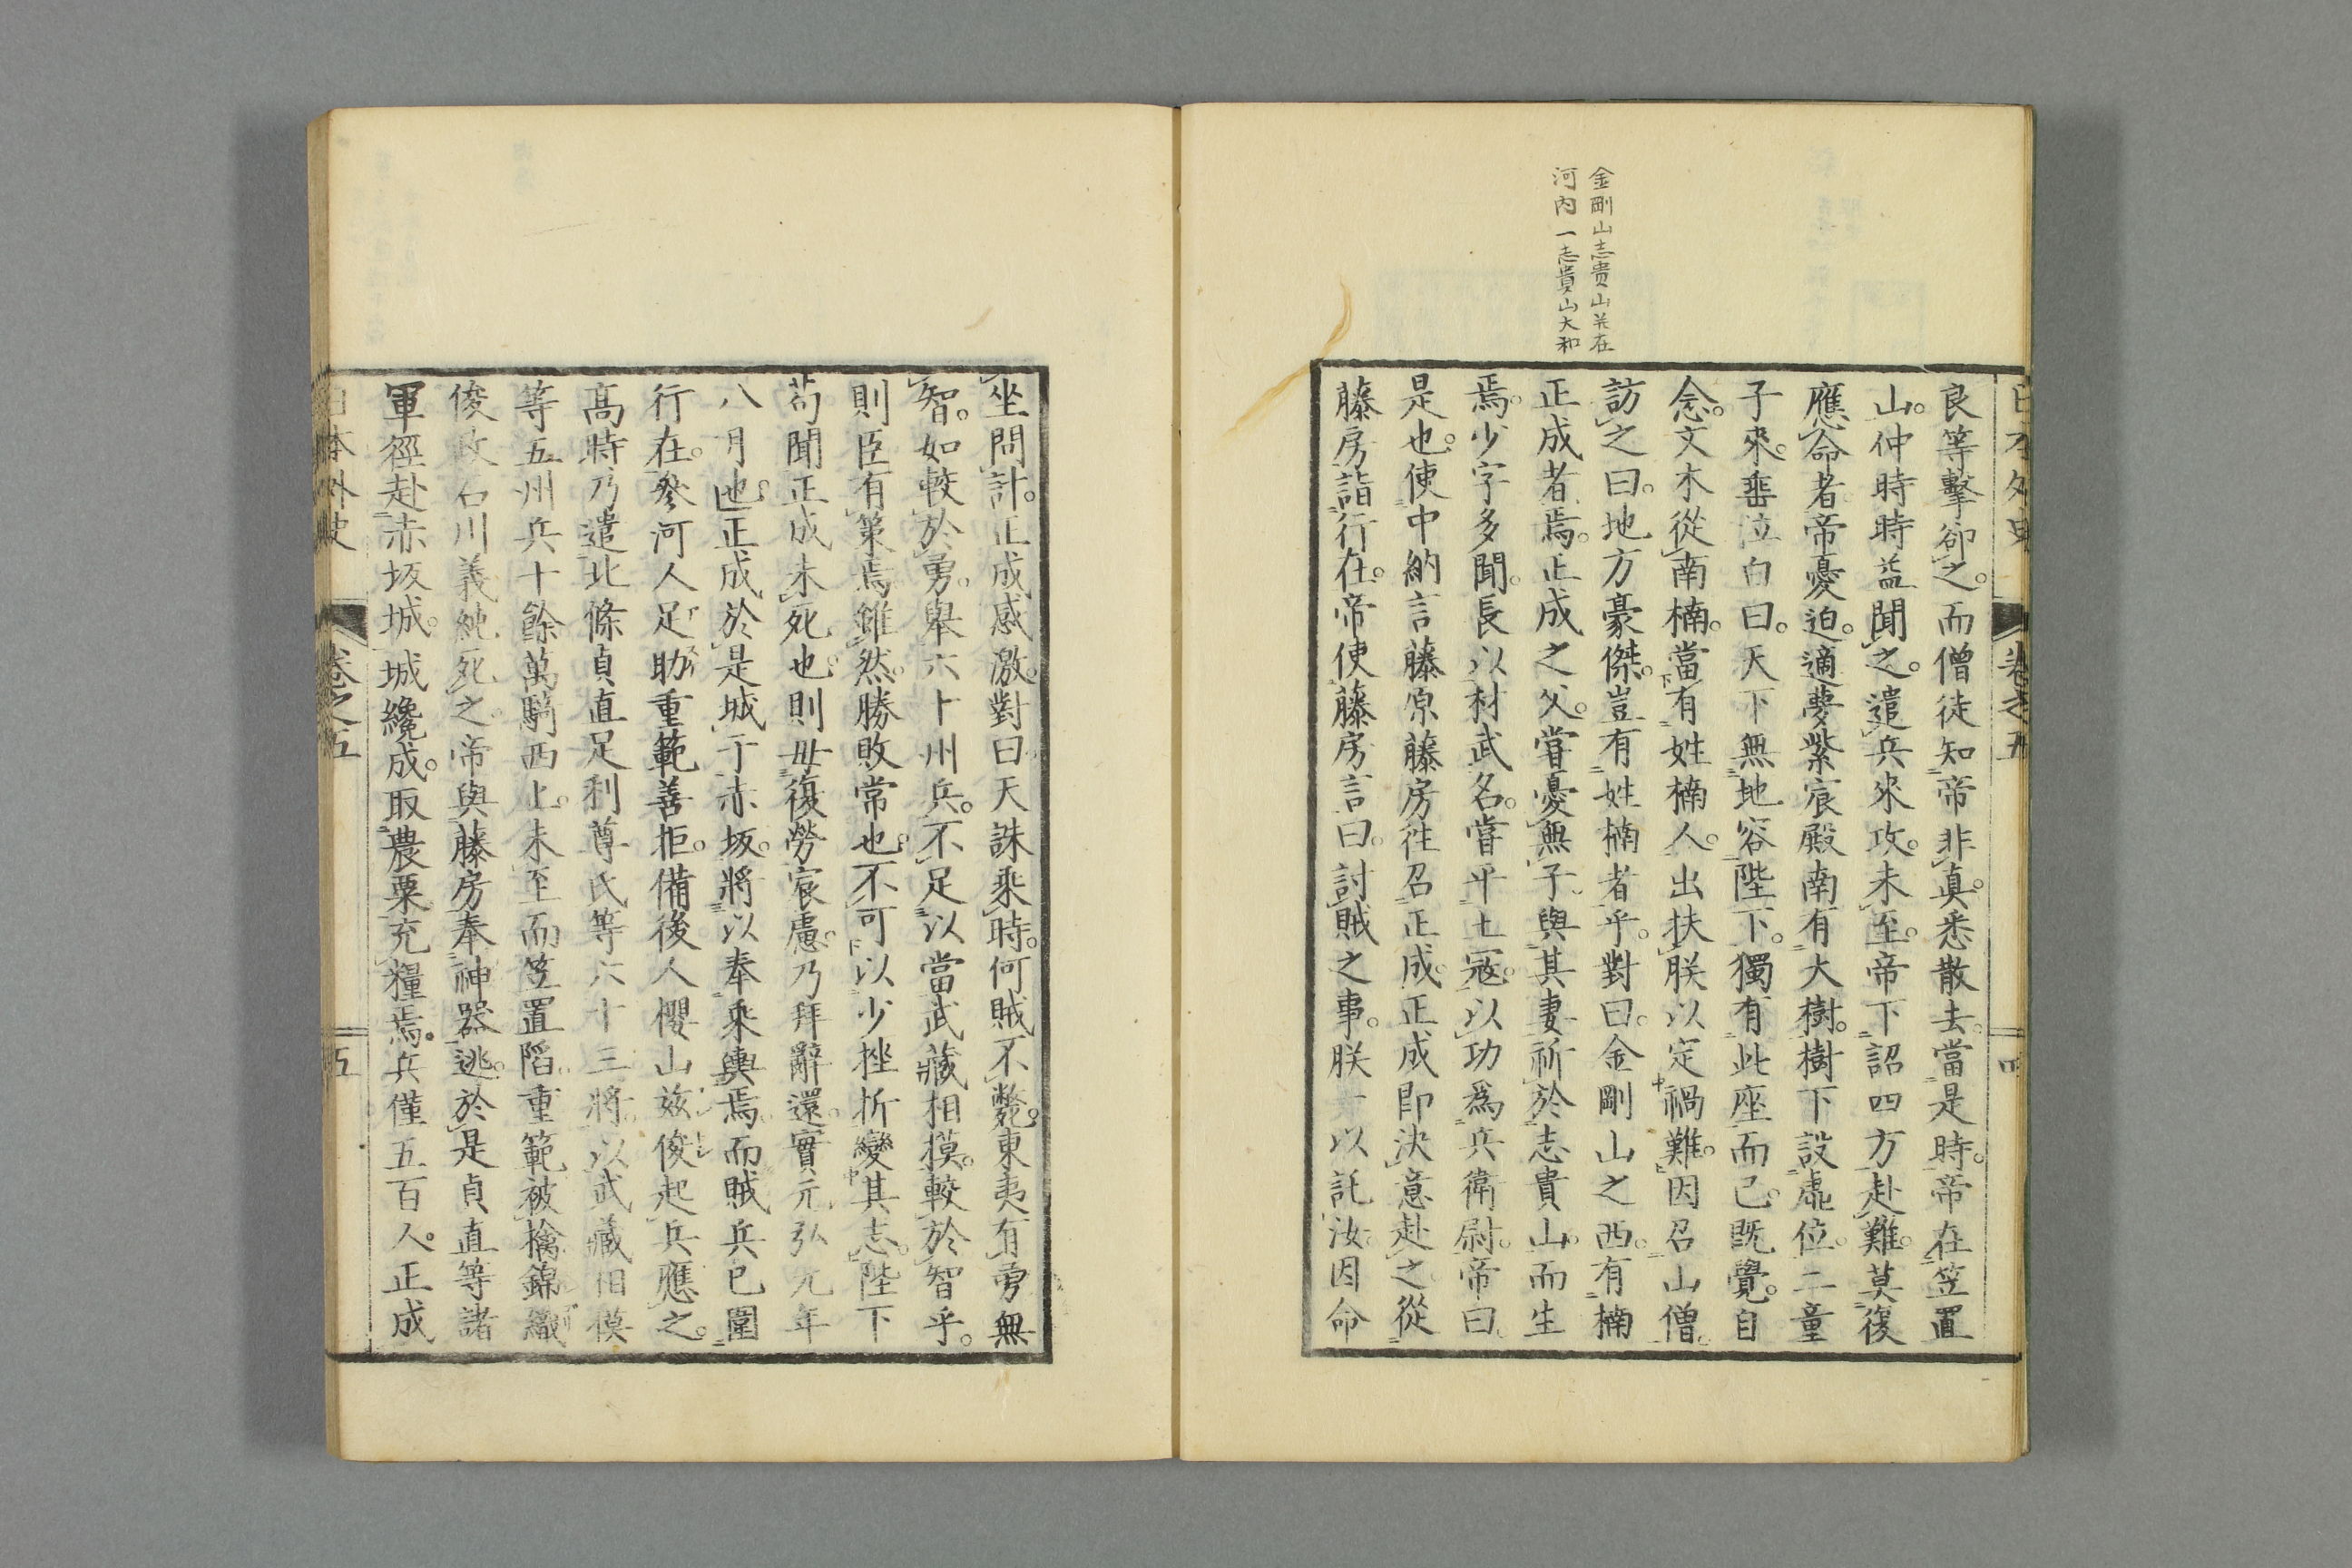 金剛山志貴山並在
河内一志貴山大和
良等擊卻之。而僧徒知帝非真。悉散去。當是時。帝在笠置
山。仲時時益聞之。遣兵來攻。未至。帝下詔四方赴難。莫復
應命者。帝憂迫。適夢紫宸殿南有大樹。樹下設虛位。二童
子來。垂泣白曰。天下無地容陛下。獨有此座而已。既覺。自
念。文木從南楠。當有姓楠人。出扶朕以定禍難。因召山僧。
訪之曰。地方豪傑。豈有姓楠者乎。對曰。金剛山之西。有楠
正成者焉。正成之父。嘗憂無子。與其妻祈於志貴山。而生
焉。少字多聞。長以材武名。嘗平土寇。以功爲兵衛尉。帝曰。
是也。使中納言藤原藤房往召正成。正成即決意赴之。從
藤房詣行在。帝使藤房言曰。討賊之事。朕以託汝。因命
坐問計。正成感激。對曰天誅乘時。何賊不斃。東夷有勇無
智。如較於勇。舉六十州兵。不足以當武藏相摸。較於智乎。
則臣有策焉。雖然。勝敗常也。不可以少挫折變其志。陛下
苟聞正成未死也。則毋復勞宸慮。乃拜辭還。實元弘元年
八月也。正成於是城于赤坂。將以奉乘輿焉。而賊兵已圍
行在。參河人足助重範善拒。備後人櫻山玆俊起兵應之。
高時乃遣北條貞直足利尊氏等六十三將。以武藏相模
等五州兵十餘萬騎西上。未至而笠置陷。重範被擒。錦織
俊政石川義純死之。帝與藤房奉神器逃。於是貞直等諸
軍徑赴赤坂城。城纔成。取農粟充糧焉。兵僅五百人。正成
日本外史 卷之五 五